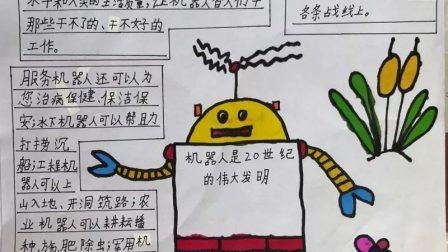 水平和人类的生活质量,让机器人替人们干
那些干不了的、干不好的
工作。
各条战线上。
服务机器人还可以为
您治病保健、保洁保
安;水下机器人可以帮助
打捞沉
船;工程机
器人可以上
山入地、开洞筑路;农
业机器人可以耕耘播
种、施肥除虫;军用机
机器人是20世纪
的伟大发明